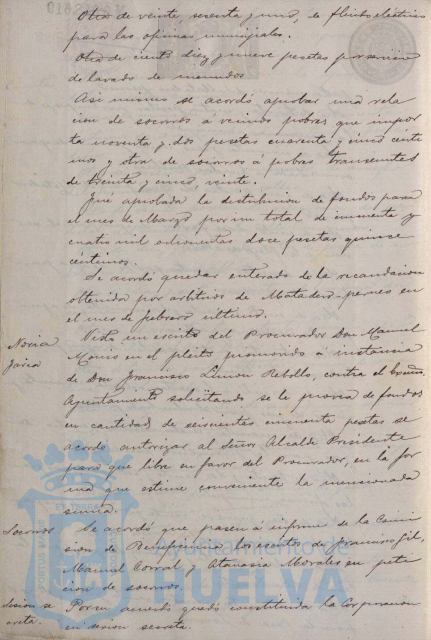 Otra de veinte, sesenta y uno, de fluido eléctrico
para las oficinas municipales.
Otra de ciento diez y nueve pesetas por servicio
de lavado de menudos
Asi mismo se acordó aprobar una rela
cion de socorros á vecinos pobres que impor
ta noventa y dos pesetas cuarenta y cinco cénti
mos y otra de socorros á pobres transeuntes
de treinta y cinco, veinte.
Fué aprobada la distribucion de fondos para
el mes de Marzo por un total de cincuenta y
cuatro mil ochocientas doce pesetas quince
céntimos.
Se acordó quedar enterado de la recaudacion
obtenida por arbitrios de Matadero-pernes en
el mes de febrero último.
Visto un escrito del Procurador Don Manuel
en el pleito promovido á instancia
de Don Francisco Limon Rebollo, contra el Excmo.
Ayuntamiento solicitando se le provea de fondos
en cantidad de seiscientas cincuenta pesetas se
acordó autorizar al Señor Alcalde Presidente
para que libre en favor del Procurador, en la for
ma que estime conveniente la mencionada
suma.
Socorros
Se acordó que pasen á informe de la Comi
sion de Beneficencia los escritos de Francisco Gil,
Manuel Corral y Atanasia Morales en peti
cion de socorros.
Sesion se
creta.
Por un acuerdo quedó constituida la Corporacion
en sesion secreta.
Ayuntamiento de
HUELVA